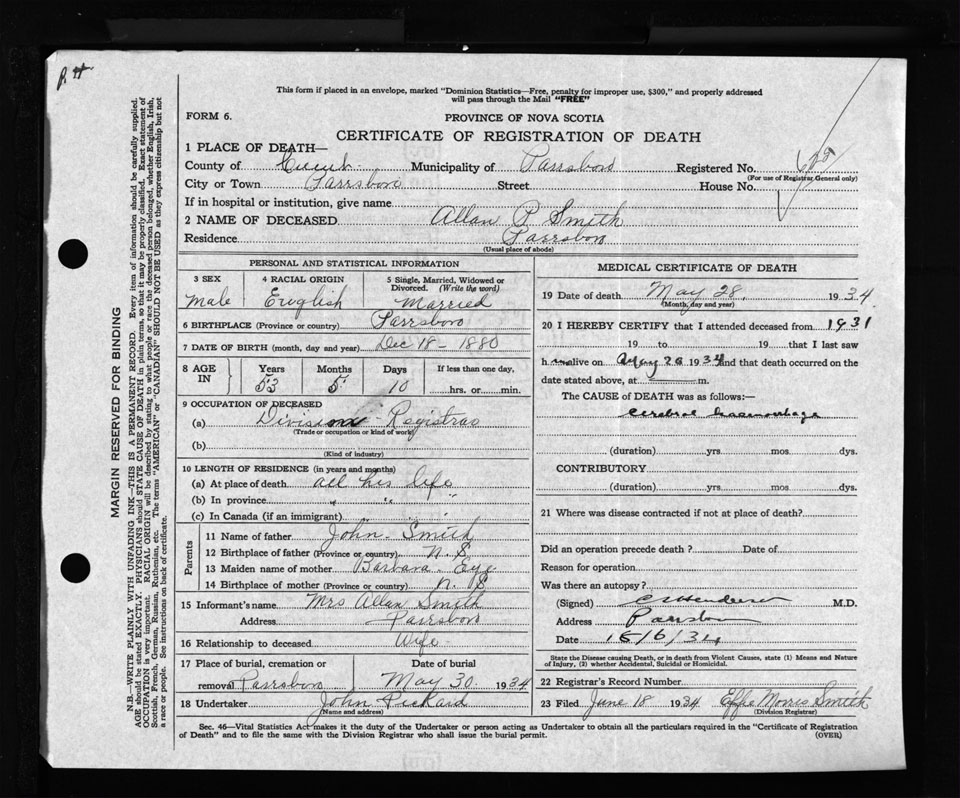 This form if placed in an envelope, marked "Dominion Statistics—Free, penalty for improper use, $300," and properly addressed
will pass through the Mail "FREE"
FORM 6.
PROVINCE OF NOVA SCOTIA
CERTIFICATE OF REGISTRATION OF DEATH
1 PLACE OF DEATH—
County of Cumb. Municipality of Parrsboro Registered No.
(For use of Registrar General only)
City or Town Parrsboro Street House No.
If in hospital or institution, give name
2 NAME OF DECEASED Allan P. Smith
Residence Parrsboro
(Usual place of abode)
PERSONAL AND STATISTICAL INFORMATION
3 SEX 4 RACIAL ORIGIN 5 Single, Married, Widowed or Divorced. (Write the word)
Male English Married
6 BIRTHPLACE (Province or country) Parrsboro
7 DATE OF BIRTH (month, day and year) Dec 18 - 1880
8 AGE IN Years Months Days If less than one day,
53 5 10 hrs. or min.
9 OCCUPATION OF DECEASED
(a) Division Registrar
(Trade or occupation or kind of work)
(b)
(Kind of industry)
10 LENGTH OF RESIDENCE (in years and months)
(a) At place of death all his life
(b) In province " " "
(c) In Canada (if an immigrant)
Parents
11 Name of father John Smith
12 Birthplace of father (Province or country) N. S
13 Maiden name of mother Barbara
14 Birthplace of mother (Province or country) N. S
15 Informant's name Mrs Allan Smith
Address Parrsboro
16 Relationship to deceased Wife
17 Place of burial, cremation or removal Parrsboro Date of burial May 30 1934
18 Undertaker John Pickard
(Name and address)
MEDICAL CERTIFICATE OF DEATH
19 Date of death May 28. 1934.
(Month, day and year)
20 I HEREBY CERTIFY that I attended deceased from 1931
19 to 19 that I last saw
him alive on May 28 1934 and that death occurred on the
date stated above, at m.
The CAUSE of DEATH was as follows:—
Cerebral haemorrhage
(duration) yrs. mos. dys.
CONTRIBUTORY
(duration) yrs. mos. dys.
21 Where was disease contracted if not at place of death?
Did an operation precede death? Date of
Reason for operation
Was there an autopsy?
(Signed) M.D.
Address Parrsboro
Date 15/6/34
State the Disease causing Death, or in death from Violent Causes, state (1) Means and Nature
of Injury, (2) whether Accidental, Suicidal or Homicidal.
22 Registrar's Record Number
23 Filed June 18 1934 Effie Smith
(Division Registrar)
Sec. 46—Vital Statistics Act makes it the duty of the Undertaker or person acting as Undertaker to obtain all the particulars required in the "Certificate of Registration
of Death" and to file the same with the Division Registrar who shall issue the burial permit. (OVER)
MARGIN RESERVED FOR BINDING
N.B.—WRITE PLAINLY WITH UNFADING INK—THIS IS A PERMANENT RECORD. Every item of information should be carefully supplied.
AGE should be stated EXACTLY. PHYSICIANS should STATE CAUSE OF DEATH in plain terms, so that it may be properly classified. Exact statement of
OCCUPATION is very important. RACIAL ORIGIN will be described by stating to what people or race the deceased person belonged, whether English, Irish,
Scottish, French, German, Russian, Ruthenian, etc. The terms "AMERICAN" or "CANADIAN" SHOULD NOT BE USED as they express citizenship but not
a race or people. See instructions on back of certificate.